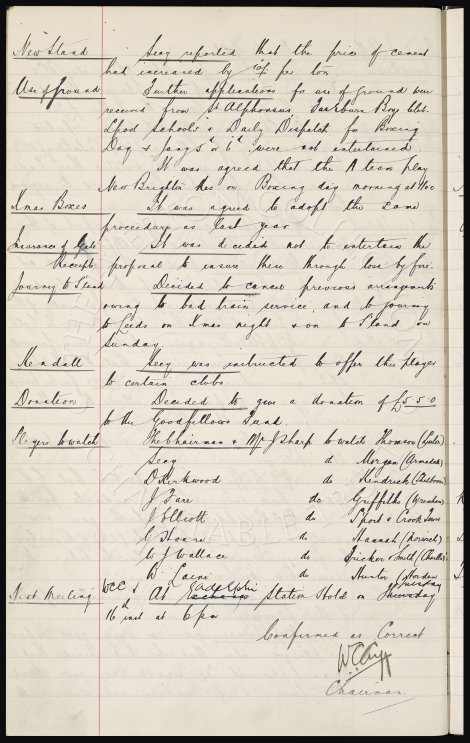 New Stand Secy reported that the price of cement
had increased by 10/- per ton
Use of Ground Further applications for use of ground were
received from St Alphonsus Fairburn Boys Club.
Lpool Schools & Daily Dispatch for Boxing
Day & Jany 5th or 6th were not entertained.
It was agreed that the A team play
New Brighton Res on Boxing day morning at
Xmas Boxes It was agreed to adopt the same
procedure as last year
Insurance of Gate It was decided not to entertain the
Receipts proposal to insure these through loss by fire.
Journey to S'land Decided to cancel previous arrangements
owing to bad train service and to journey
to Leeds on Xmas night & on to S'land on
Sunday
Kendall Secy was instructed to offer this player
to certain clubs
Donation Decided to give a donation of £5.5.0
to the Goodfellows Fund.
Players to watch The Chairman & Mr J Sharp to watch Thomson
Secy do Morgan
D Kirkwood do Kendrick
J Fare do Griffiths (Wrexham)
J Elliott do Sport & Crook Town
C Hoare do Hannah (Norwich)
C J Wallace do Fricker & Smith
W. Laine do Hunter
Tuesday
Next Meeting WCC & At Exchange Adelphi Station Hotel on Thursday
16th inst at 6pm
Confirmed as Correct
WCCuff
Chairman